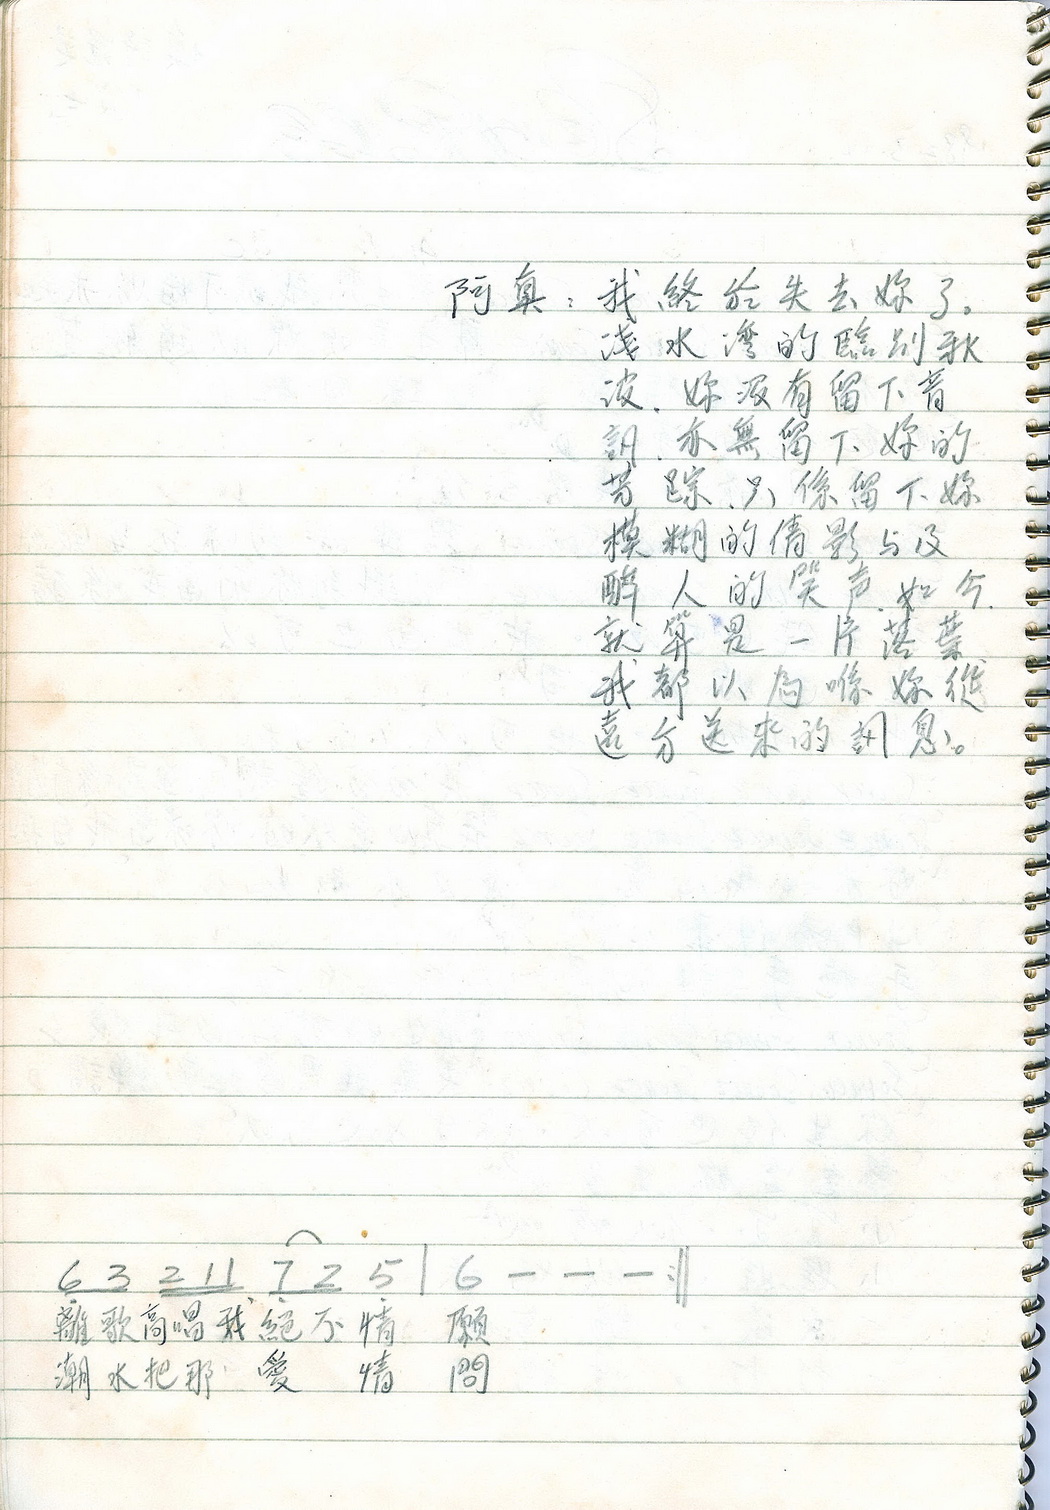 阿真：我終於失去妳了。
淺水灣的臨別秋
波．妳沒有留下音
訊．亦無留下妳的
芳踪．只係留下妳
模糊的倩影与及
醉人的笑声．如今．
就算是一片落葉
我都以為喺妳從
遠方送來的訊息。
6 3 2 1 1 7 2 5 | 6 - - - :||
離歌高唱我絕不情 願
潮水把那 愛 情 問